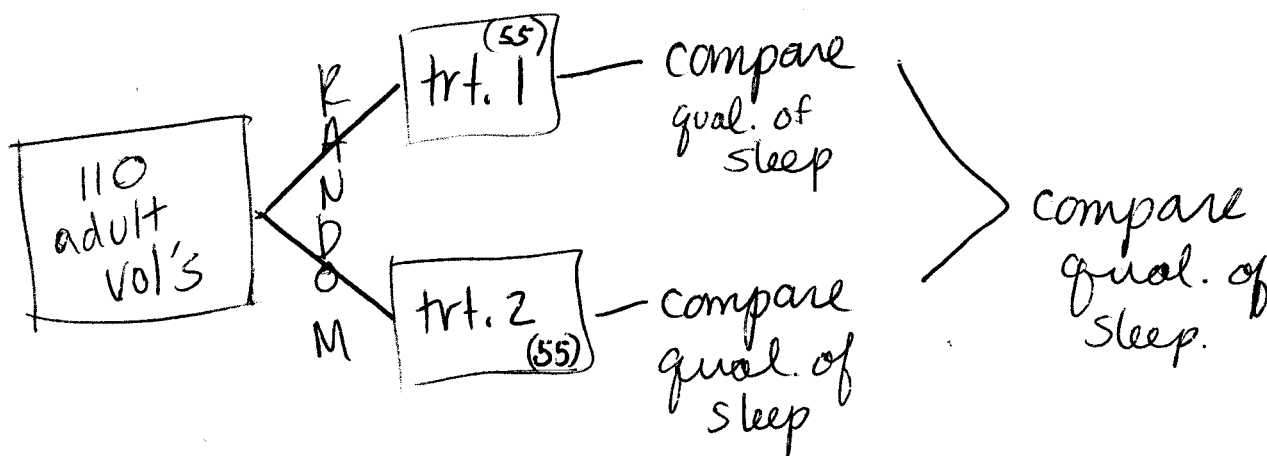 110
adult
vol's
RANDOM
(55)
trt. 1
compare
qual. of
sleep
trt. 2
(55)
compare
qual. of
sleep
compare
qual. of
sleep.